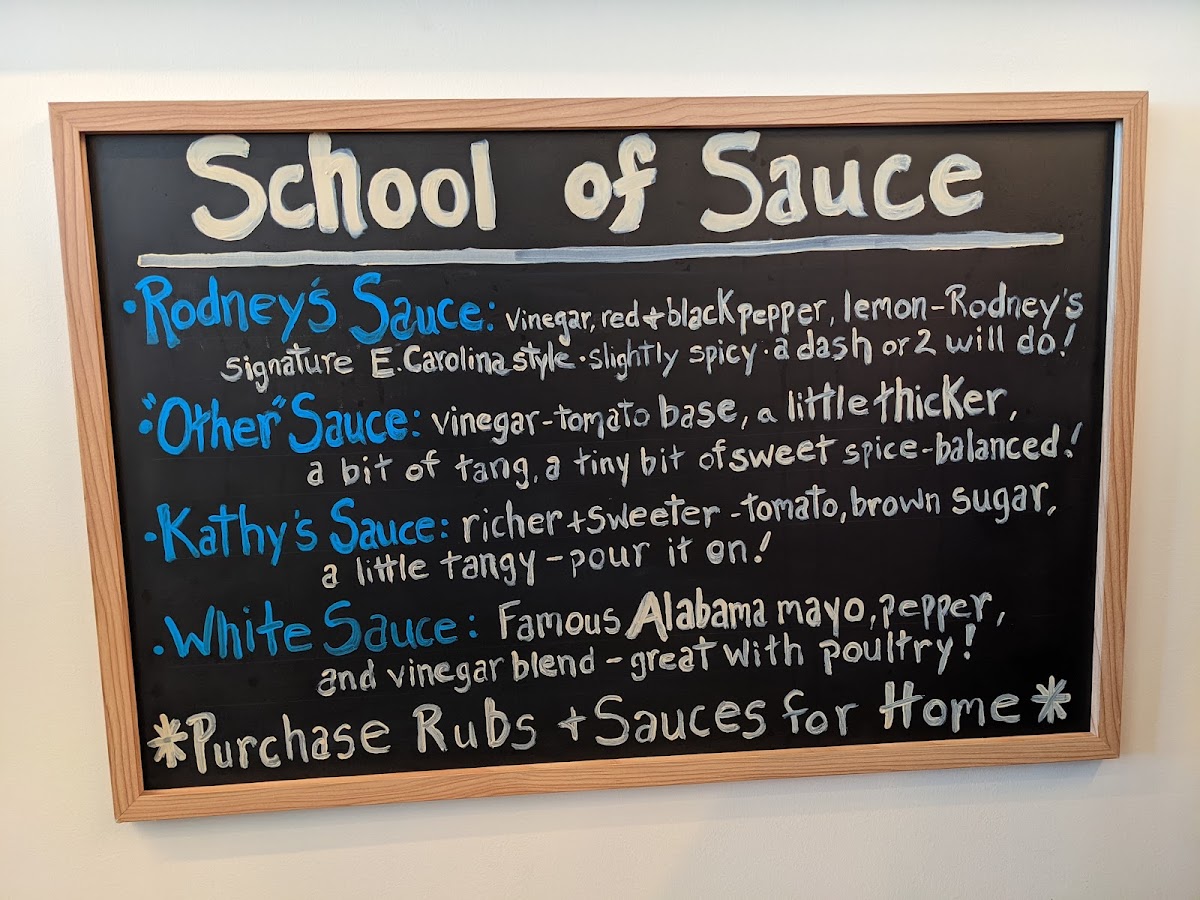 School of Sauce
• Rodney's Sauce: vinegar, red + black pepper, lemon - Rodney's
signature E. Carolina style • slightly spicy • a dash or 2 will do!
• "Other" Sauce: vinegar - tomato base, a little thicker,
a bit of tang, a tiny bit of sweet spice - balanced!
• Kathy's Sauce: richer + sweeter - tomato, brown sugar,
a little tangy - pour it on!
• White Sauce: Famous Alabama mayo, pepper,
and vinegar blend - great with poultry!
*Purchase Rubs + Sauces for Home*